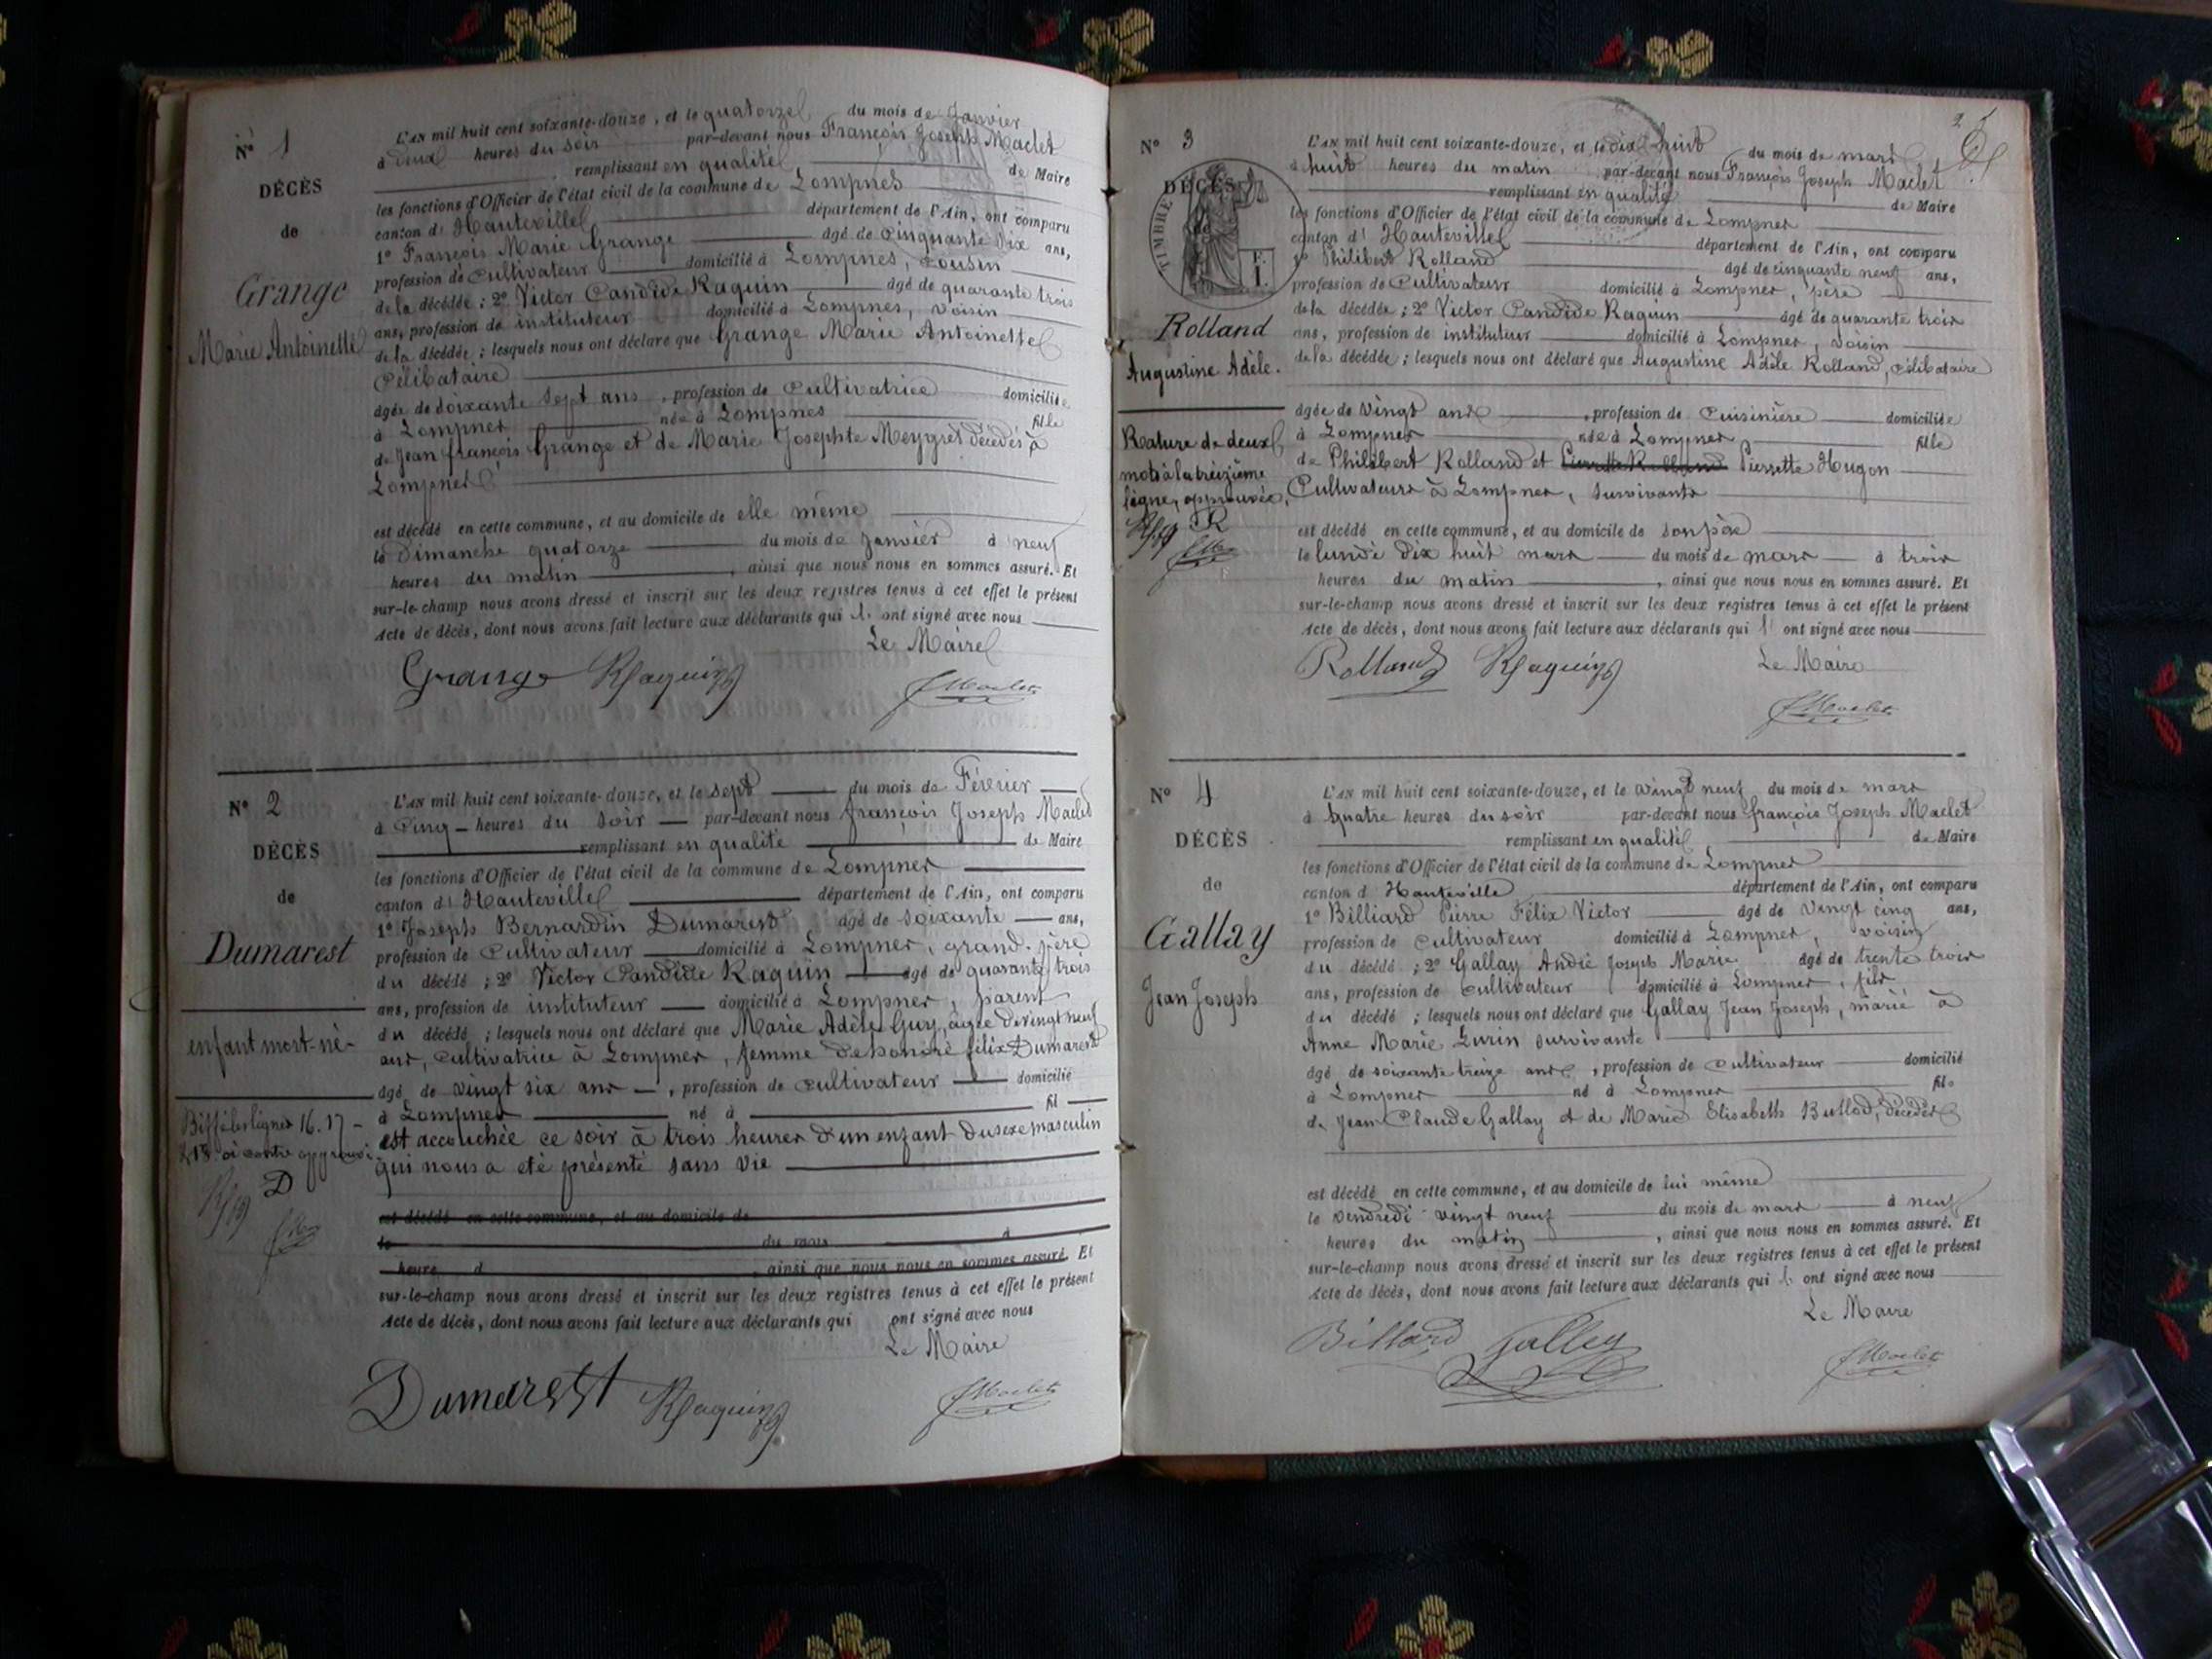 N° 1
DÉCÈS
de
Grange
Marie Antoinette
L'AN mil huit cent soixante-douze, et le quatorze du mois de Janvier
à deux heures du soir par-devant nous François Joseph Maclet
remplissant en qualité de Maire
les fonctions d'Officier de l'état civil de la commune de Lompnes
canton d' Hauteville département de l'Ain, ont comparu
1° François Marie Grange âgé de cinquante dix ans,
profession de cultivateur domicilié à Lompnes, cousin
de la décédée ; 2° Victor Candide Raquin âgé de quarante trois
ans, profession de instituteur domicilié à Lompnes, voisin
de la décédée ; lesquels nous ont déclaré que Grange Marie Antoinette
Célibataire
âgée de soixante sept ans, profession de Cultivatrice domiciliée
à Lompnes née à Lompnes fille
de Jean françois Grange et de Marie Josephte Meygret décédés à
Lompnes
est décédé en cette commune, et au domicile de elle même
le Dimanche quatorze du mois de Janvier à neuf
heures du matin, ainsi que nous nous en sommes assuré. Et
sur-le-champ nous avons dressé et inscrit sur les deux registres tenus à cet effet le présent
Acte de décès, dont nous avons fait lecture aux déclarants qui ont signé avec nous
Le Maire
Grange Raquin Maclet
N° 2
DÉCÈS
de
Dumarest
enfant mort-né
Biffé les lignes 16. 17
&18 ci contre approuvé
D
L'AN mil huit cent soixante-douze, et le sept du mois de Février
à Cinq heures du soir par-devant nous françois Joseph Maclet
remplissant en qualité de Maire
les fonctions d'Officier de l'état civil de la commune de Lompnes
canton d' Hauteville département de l'Ain, ont comparu
1° Joseph Bernardin Dumarest âgé de soixante ans,
profession de Cultivateur domicilié à Lompnes, grand-père
du décédé ; 2° Victor Candide Raquin âgé de quarante trois
ans, profession de instituteur domicilié à Lompnes, parent
du décédé ; lesquels nous ont déclaré que Marie Adèle Guy, âgée de vingt neuf
ans, cultivatrice à Lompnes, femme de honoré félix Dumarest
âgé de vingt six ans, profession de cultivateur domicilié
à Lompnes né à fil
est accouchée ce soir à trois heures d'un enfant du sexe masculin
qui nous a été présenté sans vie
est décédé en cette commune, et au domicile de
le du mois à
heure d , ainsi que nous nous en sommes assuré. Et
sur-le-champ nous avons dressé et inscrit sur les deux registres tenus à cet effet le présent
Acte de décès, dont nous avons fait lecture aux déclarants qui ont signé avec nous
Le Maire
Dumarest Raquin Maclet
2
N° 3
DÉCÈS
de
TIMBRE
F.
1.
Rolland
Augustine Adèle.
Rature de deux
mots à la treizième
ligne, approuvée,
R
L'AN mil huit cent soixante-douze, et le dix huit du mois de mars
à huit heures du matin par-devant nous François Joseph Maclet
remplissant en qualité de Maire
les fonctions d'Officier de l'état civil de la commune de Lompnes
canton d' Hauteville département de l'Ain, ont comparu
1° Philibert Rolland âgé de cinquante neuf ans,
profession de Cultivateur domicilié à Lompnes, père
de la décédée ; 2° Victor Candide Raquin âgé de quarante trois
ans, profession de instituteur domicilié à Lompnes, voisin
de la décédée ; lesquels nous ont déclaré que Augustine Adèle Rolland, célibataire
âgée de Vingt ans, profession de Cuisinière domiciliée
à Lompnes née à Lompnes fille
de Philibert Rolland et Pierrette Rolland Pierrette Hugon
Cultivateurs à Lompnes, survivants
est décédé en cette commune, et au domicile de son père
le lundi dix huit mars du mois de mars à trois
heures du matin, ainsi que nous nous en sommes assuré. Et
sur-le-champ nous avons dressé et inscrit sur les deux registres tenus à cet effet le présent
Acte de décès, dont nous avons fait lecture aux déclarants qui ont signé avec nous
Rolland Raquin Le Maire
Maclet
N° 4
DÉCÈS
de
Gallay
Jean Joseph
L'AN mil huit cent soixante-douze, et le vingt neuf du mois de mars
à quatre heures du soir par-devant nous françois Joseph Maclet
remplissant en qualité de Maire
les fonctions d'Officier de l'état civil de la commune de Lompnes
canton d' Hauteville département de l'Ain, ont comparu
1° Billiard Pierre Félix Victor âgé de vingt cinq ans,
profession de cultivateur domicilié à Lompnes, voisin
du décédé ; 2° Gallay André Joseph Marie âgé de trente trois
ans, profession de cultivateur domicilié à Lompnes, fils
du décédé ; lesquels nous ont déclaré que Gallay Jean Joseph, marié à
Anne Marie Zurin survivante
âgé de soixante treize ans, profession de cultivateur domicilié
à Lompnes né à Lompnes fils
de Jean Claude Gallay et de Marie Elisabeth Bullod, décédés
est décédé en cette commune, et au domicile de lui même
le vendredi vingt neuf du mois de mars à neuf
heures du matin, ainsi que nous nous en sommes assuré. Et
sur-le-champ nous avons dressé et inscrit sur les deux registres tenus à cet effet le présent
Acte de décès, dont nous avons fait lecture aux déclarants qui ont signé avec nous
Le Maire
Billiard Galley Maclet